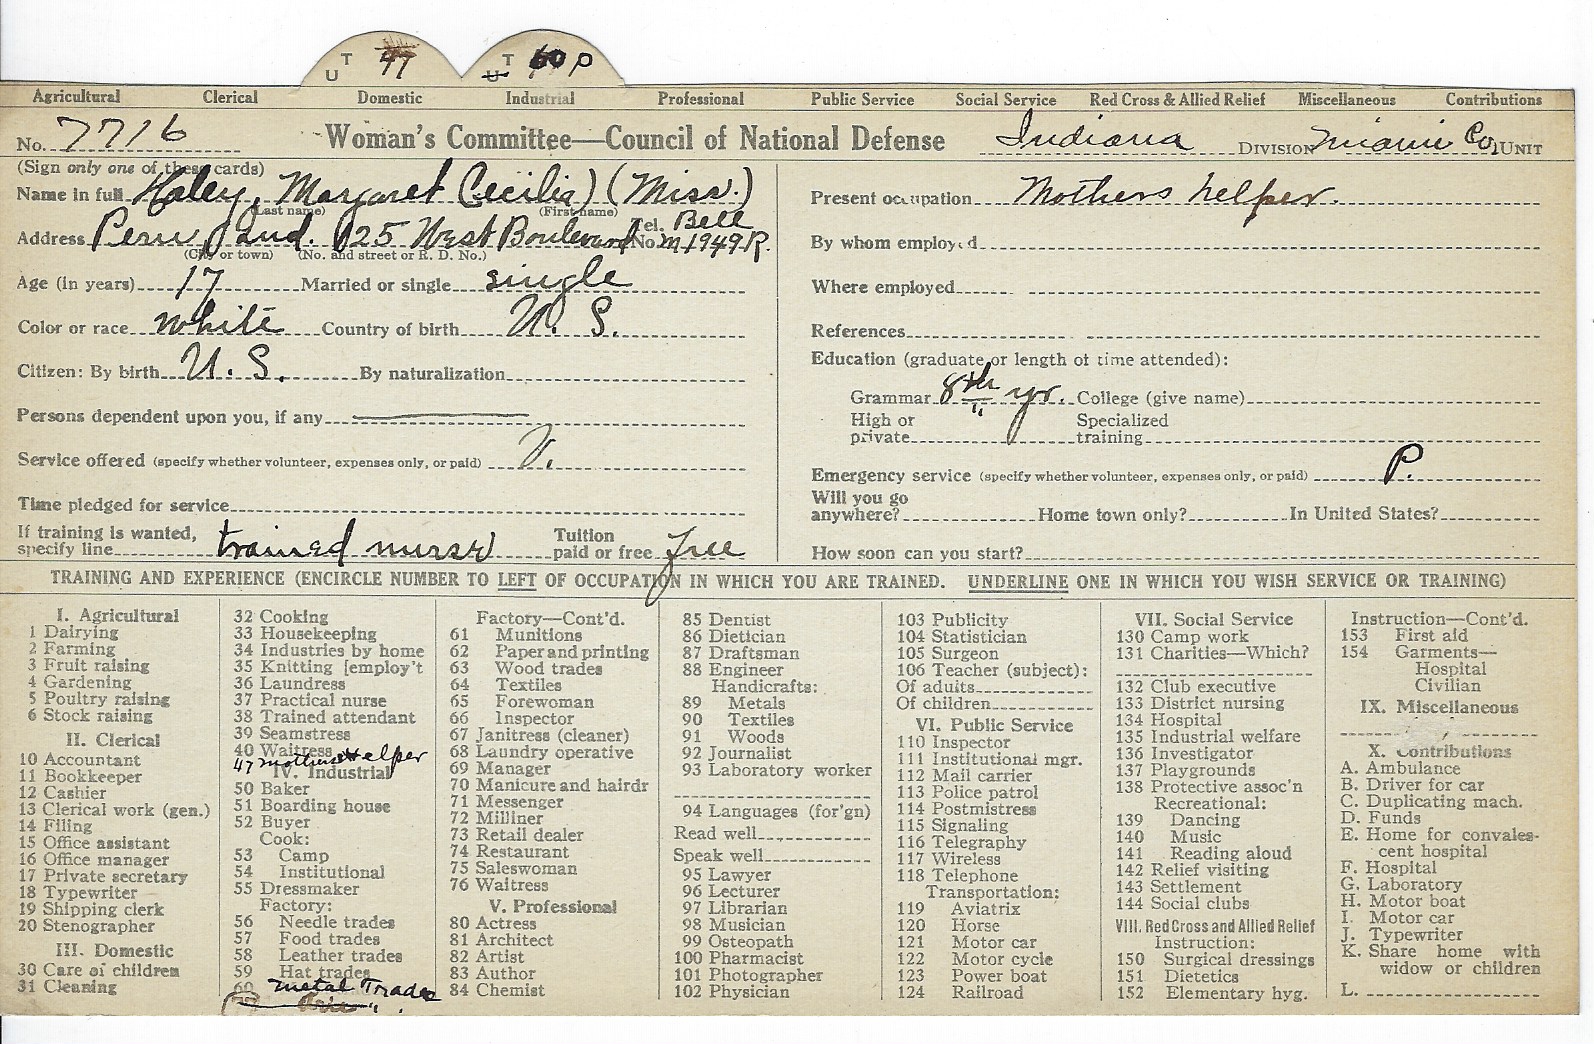 T U 47
T U 60 P
Agricultural Clerical Domestic Industrial Professional Public Service Social Service Red Cross & Allied Relief Miscellaneous Contributions
No. 7716 Woman's Committee—Council of National Defense Indiana DIVISION Miami Co. UNIT
(Sign only one of these cards)
Name in full Haley, Margaret (Cecilia) (Miss.)
(Last name) (First name)
Address Peru, Ind. 125 West Boulevard Tel. No. Bell M1949R.
(City or town) (No. and street or R. D. No.)
Age (in years) 17 Married or single single
Color or race white Country of birth U. S.
Citizen: By birth U. S. By naturalization
Persons dependent upon you, if any
Service offered (specify whether volunteer, expenses only, or paid) V.
Time pledged for service
If training is wanted, specify line trained nurse Tuition paid or free free
Present occupation Mothers helper.
By whom employed
Where employed
References
Education (graduate or length of time attended):
Grammar 8th yr. College (give name)
High or private Specialized training
Emergency service (specify whether volunteer, expenses only, or paid) P.
Will you go anywhere? Home town only? In United States?
How soon can you start?
TRAINING AND EXPERIENCE (ENCIRCLE NUMBER TO LEFT OF OCCUPATION IN WHICH YOU ARE TRAINED. UNDERLINE ONE IN WHICH YOU WISH SERVICE OR TRAINING)
I. Agricultural
1 Dairying
2 Farming
3 Fruit raising
4 Gardening
5 Poultry raising
6 Stock raising
II. Clerical
10 Accountant
11 Bookkeeper
12 Cashier
13 Clerical work (gen.)
14 Filing
15 Office assistant
16 Office manager
17 Private secretary
18 Typewriter
19 Shipping clerk
20 Stenographer
III. Domestic
30 Care of children
31 Cleaning
32 Cooking
33 Housekeeping
34 Industries by home
35 Knitting [employ't
36 Laundress
37 Practical nurse
38 Trained attendant
39 Seamstress
40 Waitress
47 Mothers Helper
IV. Industrial
50 Baker
51 Boarding house
52 Buyer
Cook:
53 Camp
54 Institutional
55 Dressmaker
Factory:
56 Needle trades
57 Food trades
58 Leather trades
59 Hat trades
60 Metal Trade
Factory—Cont'd.
61 Munitions
62 Paper and printing
63 Wood trades
64 Textiles
65 Forewoman
66 Inspector
67 Janitress (cleaner)
68 Laundry operative
69 Manager
70 Manicure and hairdr
71 Messenger
72 Milliner
73 Retail dealer
74 Restaurant
75 Saleswoman
76 Waitress
V. Professional
80 Actress
81 Architect
82 Artist
83 Author
84 Chemist
85 Dentist
86 Dietician
87 Draftsman
88 Engineer
Handicrafts:
89 Metals
90 Textiles
91 Woods
92 Journalist
93 Laboratory worker
94 Languages (for'gn)
Read well
Speak well
95 Lawyer
96 Lecturer
97 Librarian
98 Musician
99 Osteopath
100 Pharmacist
101 Photographer
102 Physician
103 Publicity
104 Statistician
105 Surgeon
106 Teacher (subject):
Of adults
Of children
VI. Public Service
110 Inspector
111 Institutional mgr.
112 Mail carrier
113 Police patrol
114 Postmistress
115 Signaling
116 Telegraphy
117 Wireless
118 Telephone
Transportation:
119 Aviatrix
120 Horse
121 Motor car
122 Motor cycle
123 Power boat
124 Railroad
VII. Social Service
130 Camp work
131 Charities—Which?
132 Club executive
133 District nursing
134 Hospital
135 Industrial welfare
136 Investigator
137 Playgrounds
138 Protective assoc'n
Recreational:
139 Dancing
140 Music
141 Reading aloud
142 Relief visiting
143 Settlement
144 Social clubs
VIII. Red Cross and Allied Relief
Instruction:
150 Surgical dressings
151 Dietetics
152 Elementary hyg.
Instruction—Cont'd.
153 First aid
154 Garments—
Hospital
Civilian
IX. Miscellaneous
X. Contributions
A. Ambulance
B. Driver for car
C. Duplicating mach.
D. Funds
E. Home for convales-
cent hospital
F. Hospital
G. Laboratory
H. Motor boat
I. Motor car
J. Typewriter
K. Share home with
widow or children
L.